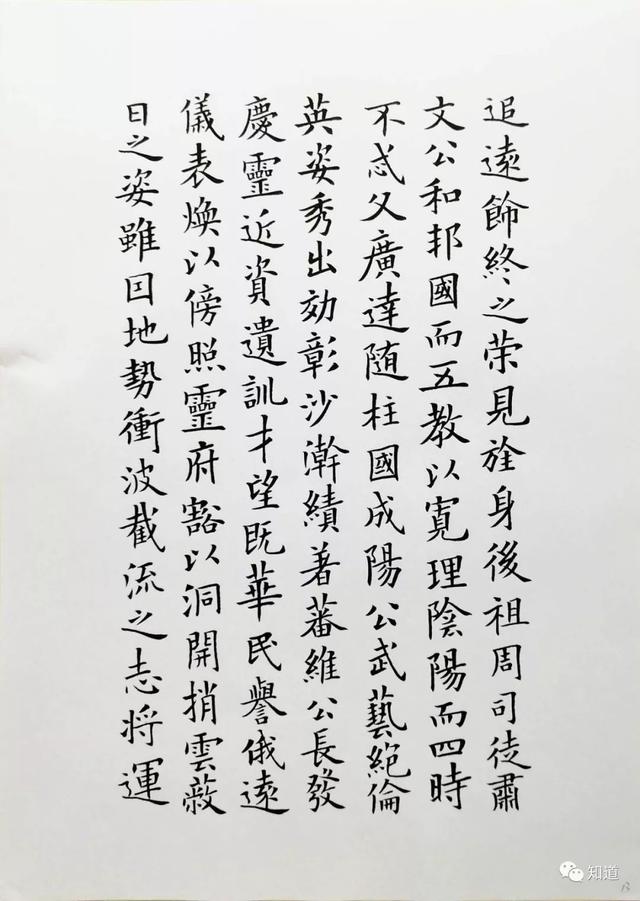 追遠飾終之荣見旌身後祖周司徒肅
文公和邦國而五教以寛理陰陽而四時
不忒父廣達随柱國成陽公武藝絶倫
英姿秀出効彰沙澣績著蕃維公長發
慶靈近資遺訓才望既華民譽俄遠
儀表煥以傍照靈府豁以洞開捎雲蔽
日之姿雖因地勢衝波截流之志将運
知道
13